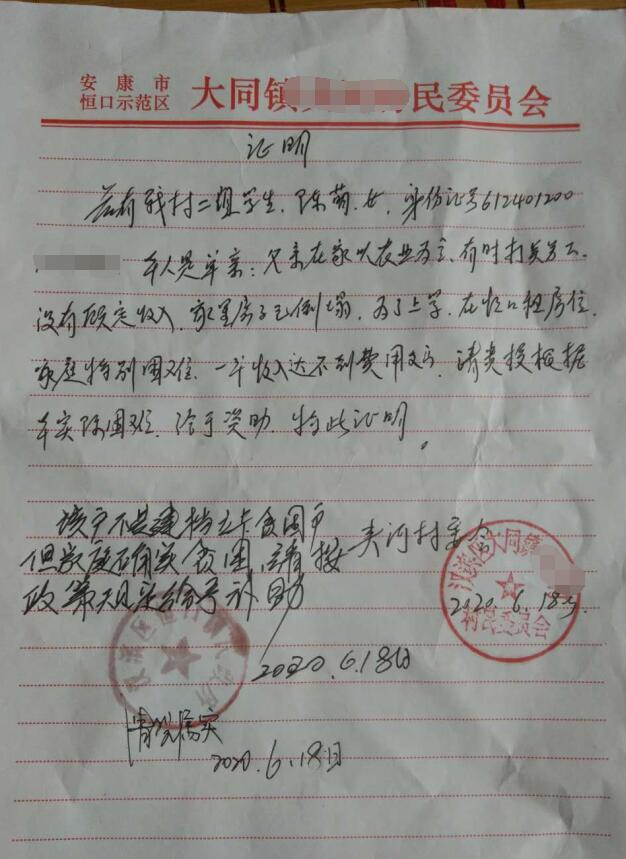 安康市
恒口示范区 大同镇 民委员会
证明
兹有我村二组学生，陈萌，女，身份证号612401200
本人是单亲：父亲在家以农业为主、有时打点另工、
没有硕定收入，家里房子已倒塌，为了上学，在恒口租房住，
家庭特别困难，一年收入达不到费用支，请贵校根据
本实际困难，给于资助，特此证明。
该户不是建档立卡贫困户 夹河村委会
但家庭确实贫困，请按
政策规定给予补助
汉滨区大同镇
村民委员会
2020.6.18号
2020.6.18日
情况属实
2020.6.18日